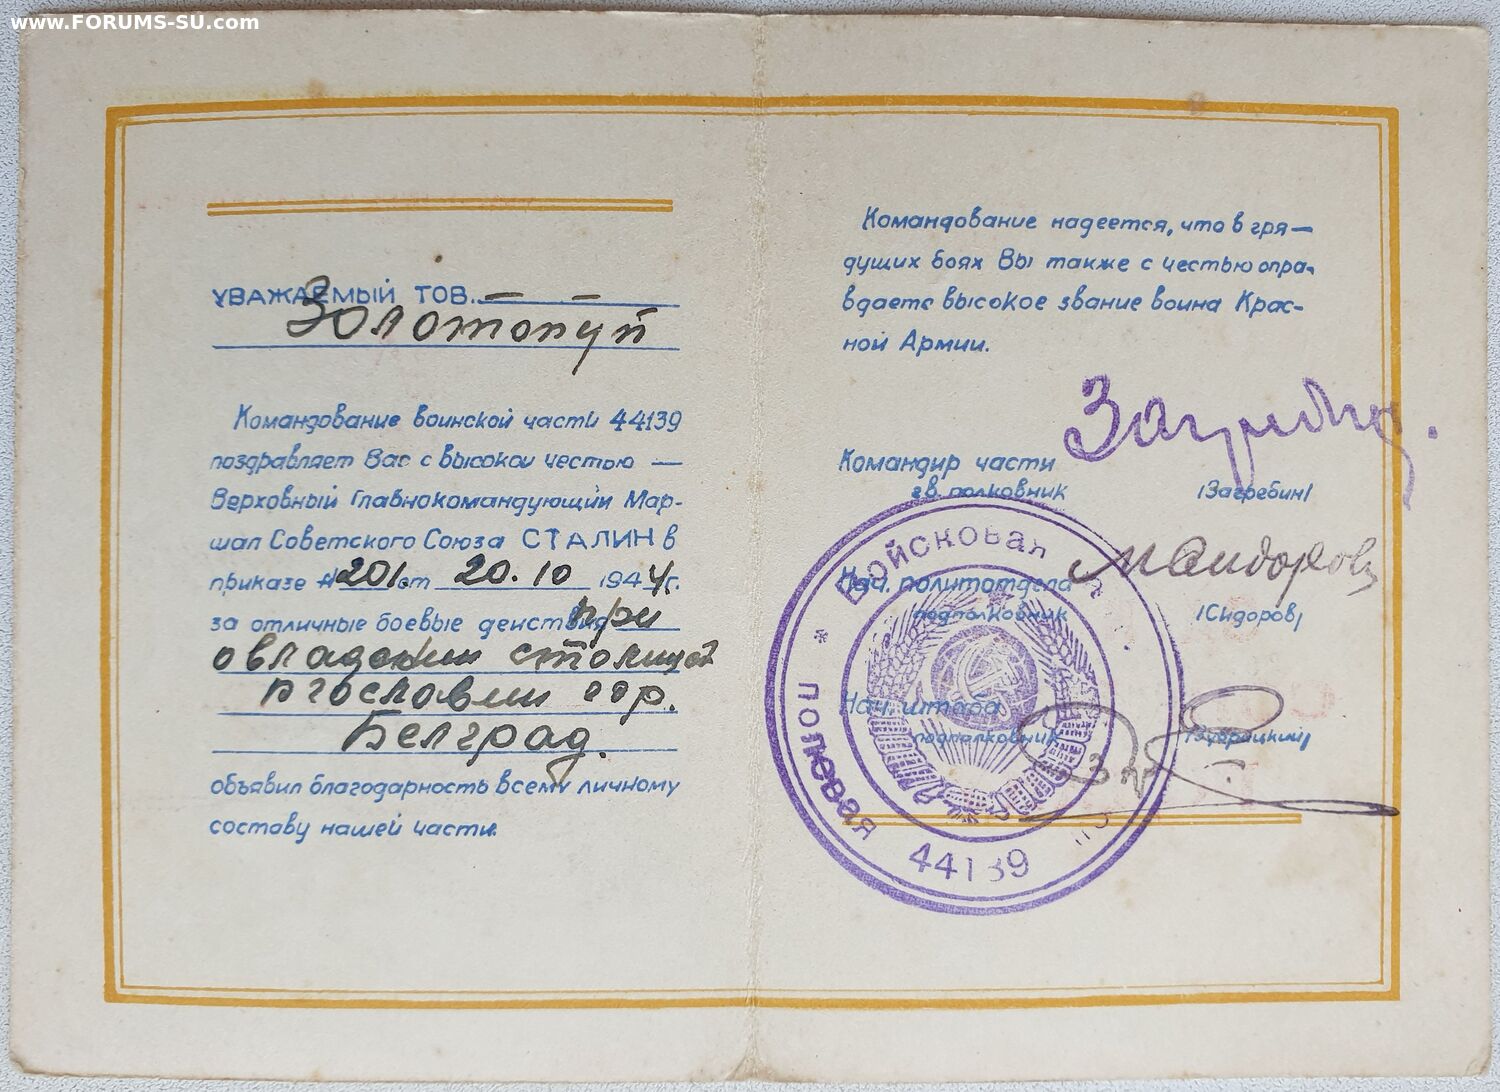 www.FORUMS-SU.com
УВАЖАЕМЫЙ ТОВ.
Золотопуп
Командование воинской части 44139
поздравляет Вас с высокой честью —
Верховный Главнокомандующий Мар-
шал Советского Союза СТАЛИН в
приказе № 201 от 20.10 1944 г.
за отличные боевые действия при
овладении столицей
гор.
Белград.
объявил благодарность всему личному
составу нашей части.
Командование надеется, что в гря—
дущих боях Вы также с честью опра-
вдаете высокое звание воина Крас-
ной Армии.
Командир части
гв. полковник /Загребин/
Нач. политотдела
подполковник /Сидоров/
Нач. штаба
подполковник
Войсковая
полевая
44139